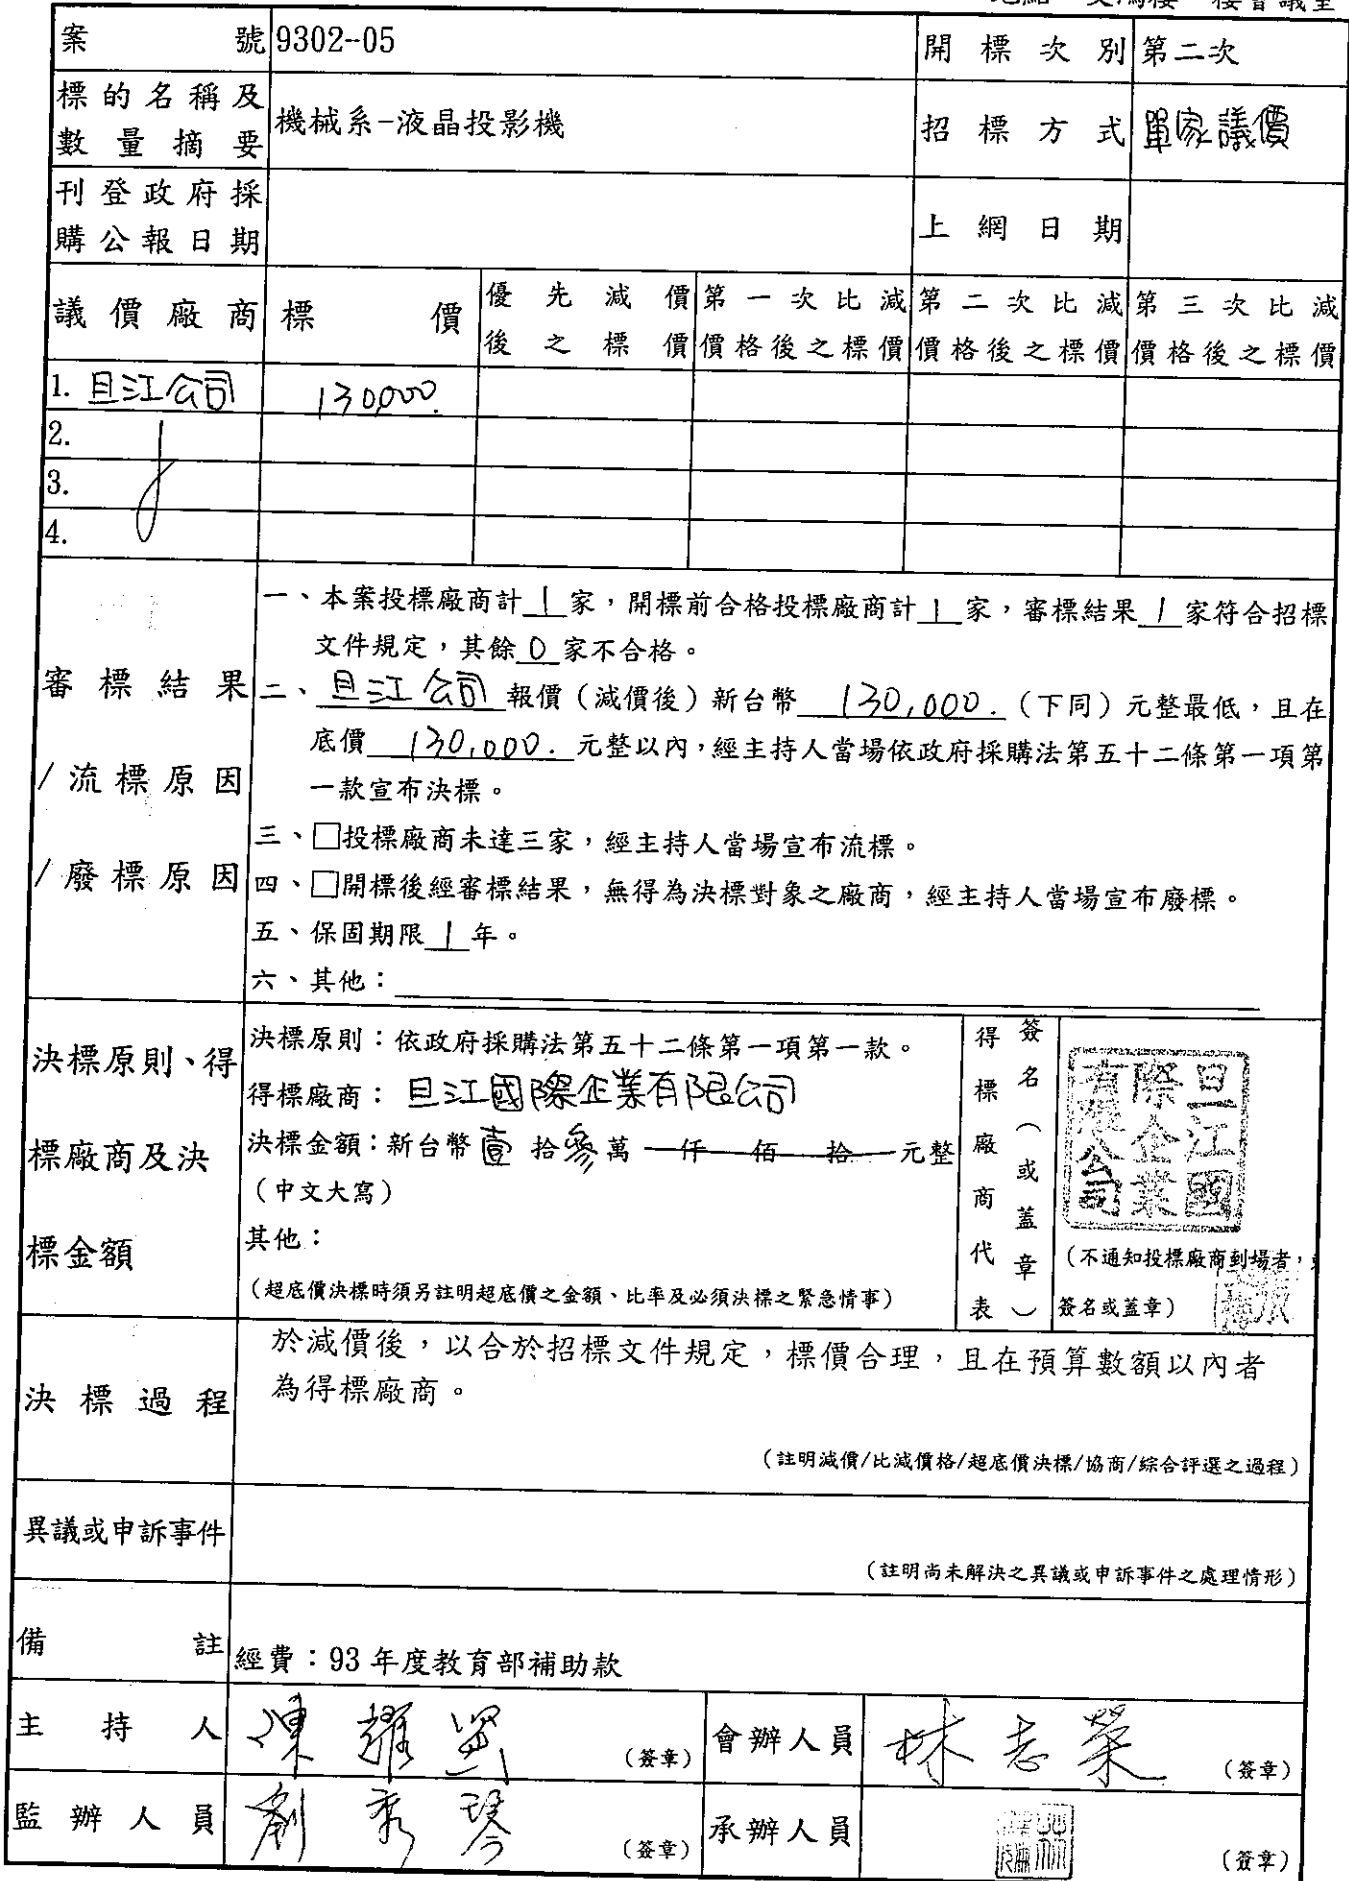 案號 9302-05 開標次別 第二次
標的名稱及
數量摘要 機械系-液晶投影機 招標方式 單家議價
刊登政府採
購公報日期 上網日期
議價廠商 標價 優先減價 第一次比減 第二次比減 第三次比減
後之標價 價格後之標價 價格後之標價 價格後之標價
1. 旦江公司 130,000.
2.
3.
4.
審標結果
/流標原因
/廢標原因
一、本案投標廠商計 1 家，開標前合格投標廠商計 1 家，審標結果 1 家符合招標
文件規定，其餘 0 家不合格。
二、旦江公司 報價（減價後）新台幣 130,000. （下同）元整最低，且在
底價 130,000. 元整以內，經主持人當場依政府採購法第五十二條第一項第
一款宣布決標。
三、□投標廠商未達三家，經主持人當場宣布流標。
四、□開標後經審標結果，無得為決標對象之廠商，經主持人當場宣布廢標。
五、保固期限 1 年。
六、其他：
決標原則、得
標廠商及決
標金額
決標原則：依政府採購法第五十二條第一項第一款。
得標廠商：旦江國際企業有限公司
決標金額：新台幣壹拾參萬 仟 佰 拾 元整
（中文大寫）
其他：
（超底價決標時須另註明超底價之金額、比率及必須決標之緊急情事）
得標廠商代表
簽名（或蓋章）
旦江國
際企業
有限公司
（不通知投標廠商到場者，
簽名或蓋章）
決標過程
於減價後，以合於招標文件規定，標價合理，且在預算數額以內者
為得標廠商。
（註明減價/比減價格/超底價決標/協商/綜合評選之過程）
異議或申訴事件
（註明尚未解決之異議或申訴事件之處理情形）
備註 經費：93 年度教育部補助款
主持人 陳耀 （簽章） 會辦人員 林志榮 （簽章）
監辦人員 劉秀琴 （簽章） 承辦人員 （簽章）